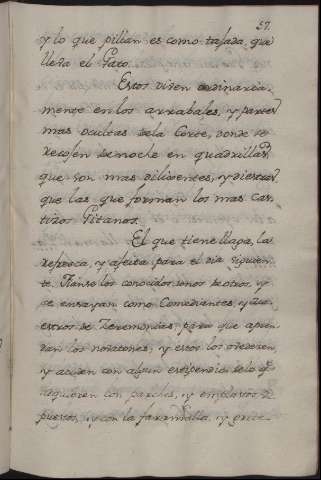 57.
y lo que pillan es como tajada, que
lleva el Gato.
Estos viven ordinaria-
mente en los arrabales, y partes
mas ocultas de la Corte, donde se
recojen de noche en quadrillas,
que son mas diligentes, y diestras
que las que forman los mas cas-
tizos Gitanos.
El que tiene llaga, la
refresca, y afeita para el dia siguien-
te. Hanse los conocidos, unos de otros, y
se ensayan como Comediantes, y Ma-
estros de Zeremonias, para que apren-
dan los novatones, y estos los obedecen,
y acuden con algun estipendio de lo q.
adquieren con parches, y emplastos su-
puestos, y con la farandilla, y grite-